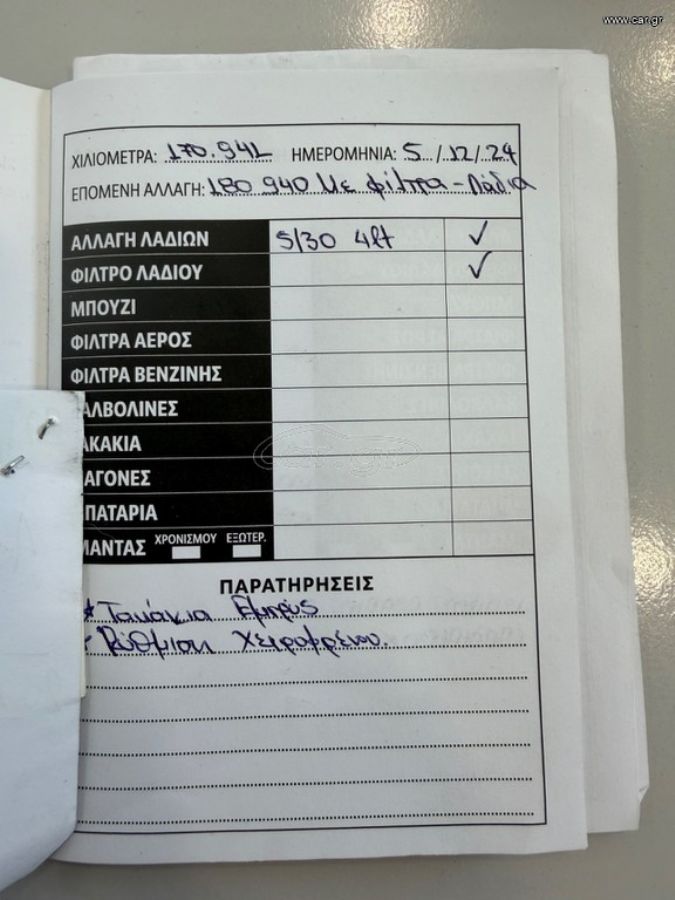 www.car.gr
ΧΙΛΙΟΜΕΤΡΑ: 170.941 ΗΜΕΡΟΜΗΝΙΑ: 5/12/24
ΕΠΟΜΕΝΗ ΑΛΛΑΓΗ: 180 940 Με φίλτρα - Λάδια
ΑΛΛΑΓΗ ΛΑΔΙΩΝ 5/30 4lt ✓
ΦΙΛΤΡΟ ΛΑΔΙΟΥ ✓
ΜΠΟΥΖΙ
ΦΙΛΤΡΑ ΑΕΡΟΣ
ΦΙΛΤΡΑ ΒΕΝΖΙΝΗΣ
ΑΛΒΟΛΙΝΕΣ
ΑΚΑΚΙΑ
ΑΓΟΝΕΣ
ΠΑΤΑΡΙΑ
ΜΑΝΤΑΣ ΧΡΟΝΙΣΜΟΥ ΕΞΩΤΕΡ.
ΠΑΡΑΤΗΡΗΣΕΙΣ
* Τακάκια Εμπρός
- Ρύθμιση Χειροφρένου.